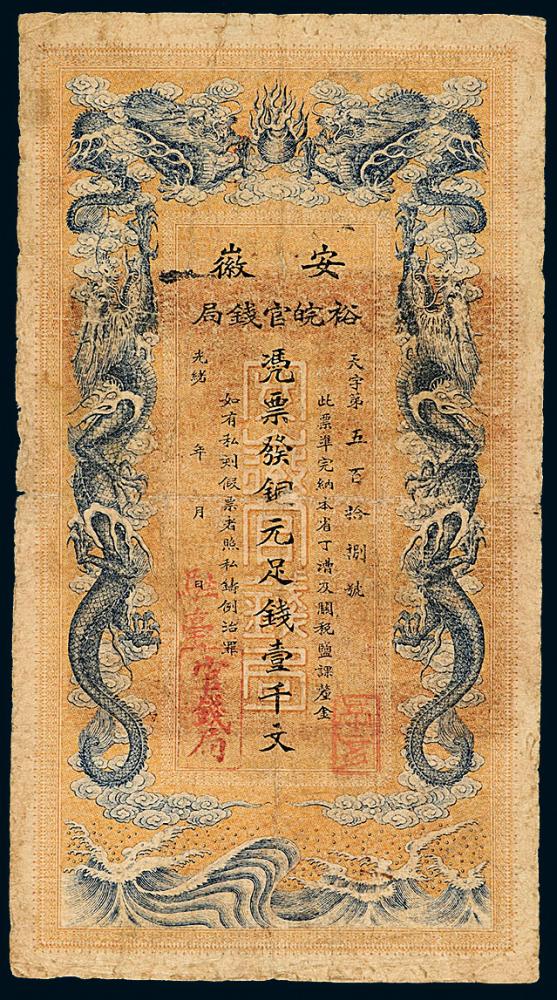 安徽
裕皖官錢局
天字第五百拾捌號
此票準完納本省丁漕及關稅鹽課釐金
憑票發銅元足錢壹千文
如有私刻假票者照私鑄例治罪
光緒 年 月 日
官錢局